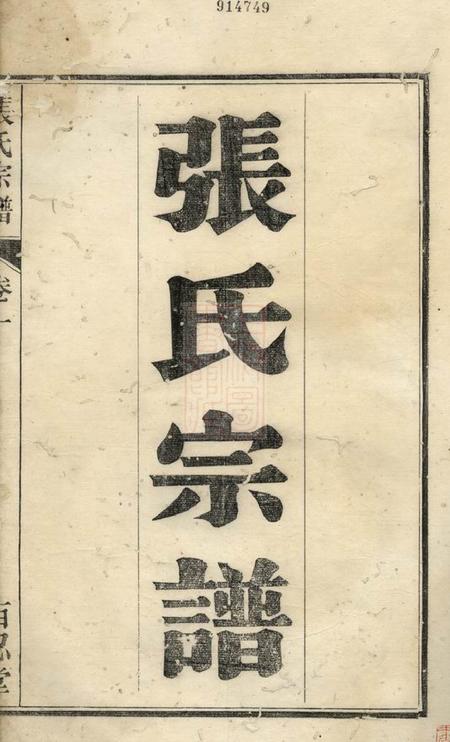 914749
張氏宗譜
張氏宗譜
卷一
百忍堂